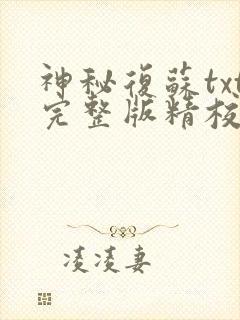 神秘復蘇txt
完整版精校
凌凌妻